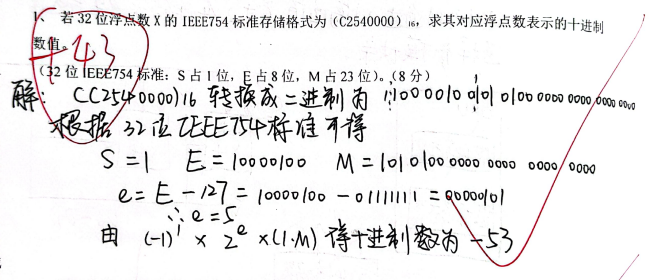 1、若 32 位浮点数 X 的 IEEE754 标准存储格式为（C2540000）16，求其对应浮点数表示的十进制
数值。
+43
(32 位 IEEE754 标准：S 占 1 位，E 占 8 位，M 占 23 位)。（8 分）
解： (C2540000)16 转换成二进制为 11000010 0101 0100 0000 0000 0000 0000
根据 32位 IEEE754标准可得
S=1 E=10000100 M=1010100 0000 0000 0000 0000
e=E-127=10000100-01111111=00000101
∴e=5
由 (-1)¹×2ᵉ×(1.M) 得十进制数为 -53